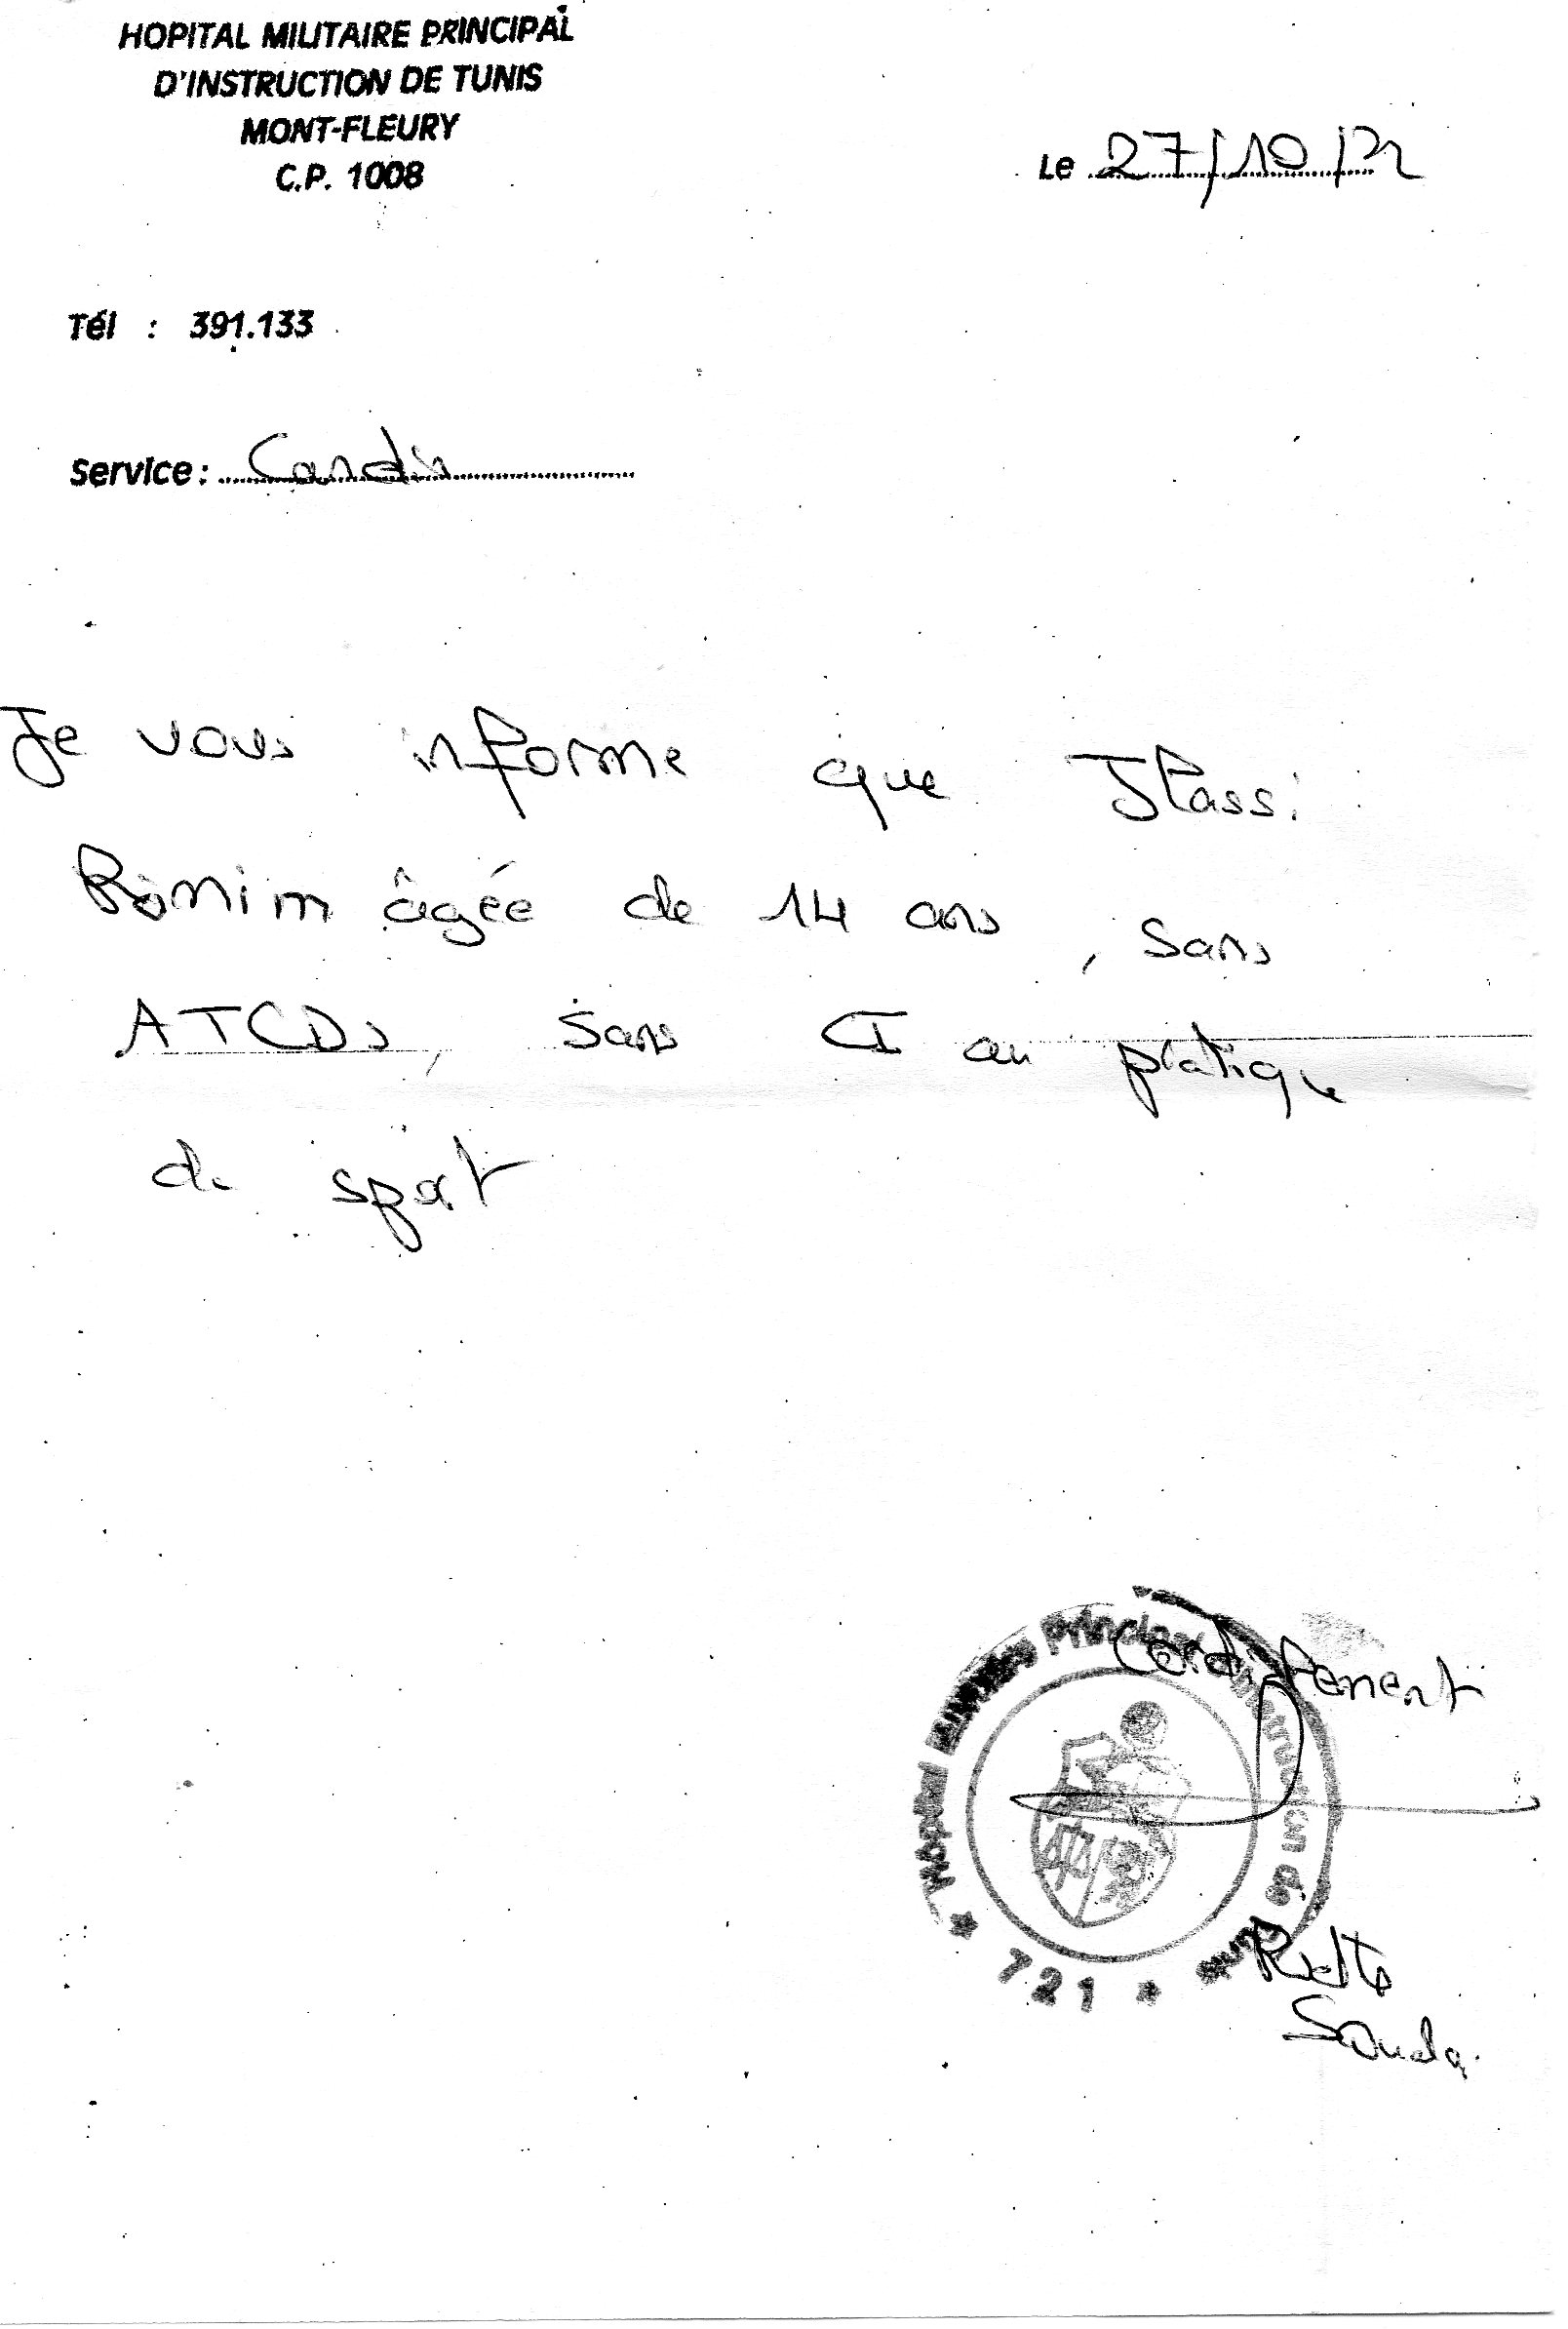 HOPITAL MILITAIRE PRINCIPAL
D'INSTRUCTION DE TUNIS
MONT-FLEURY
C.P. 1008
Le 27/10/22
Tél : 391.133
Service: Cardio
Je vous informe que Jlassi
Ranim âgée de 14 ans, sans
ATCDs, sans CI au pratique
de sport
Cordialement
Hôpital Militaire Principal d'Instruction de Tunis
* 721 *